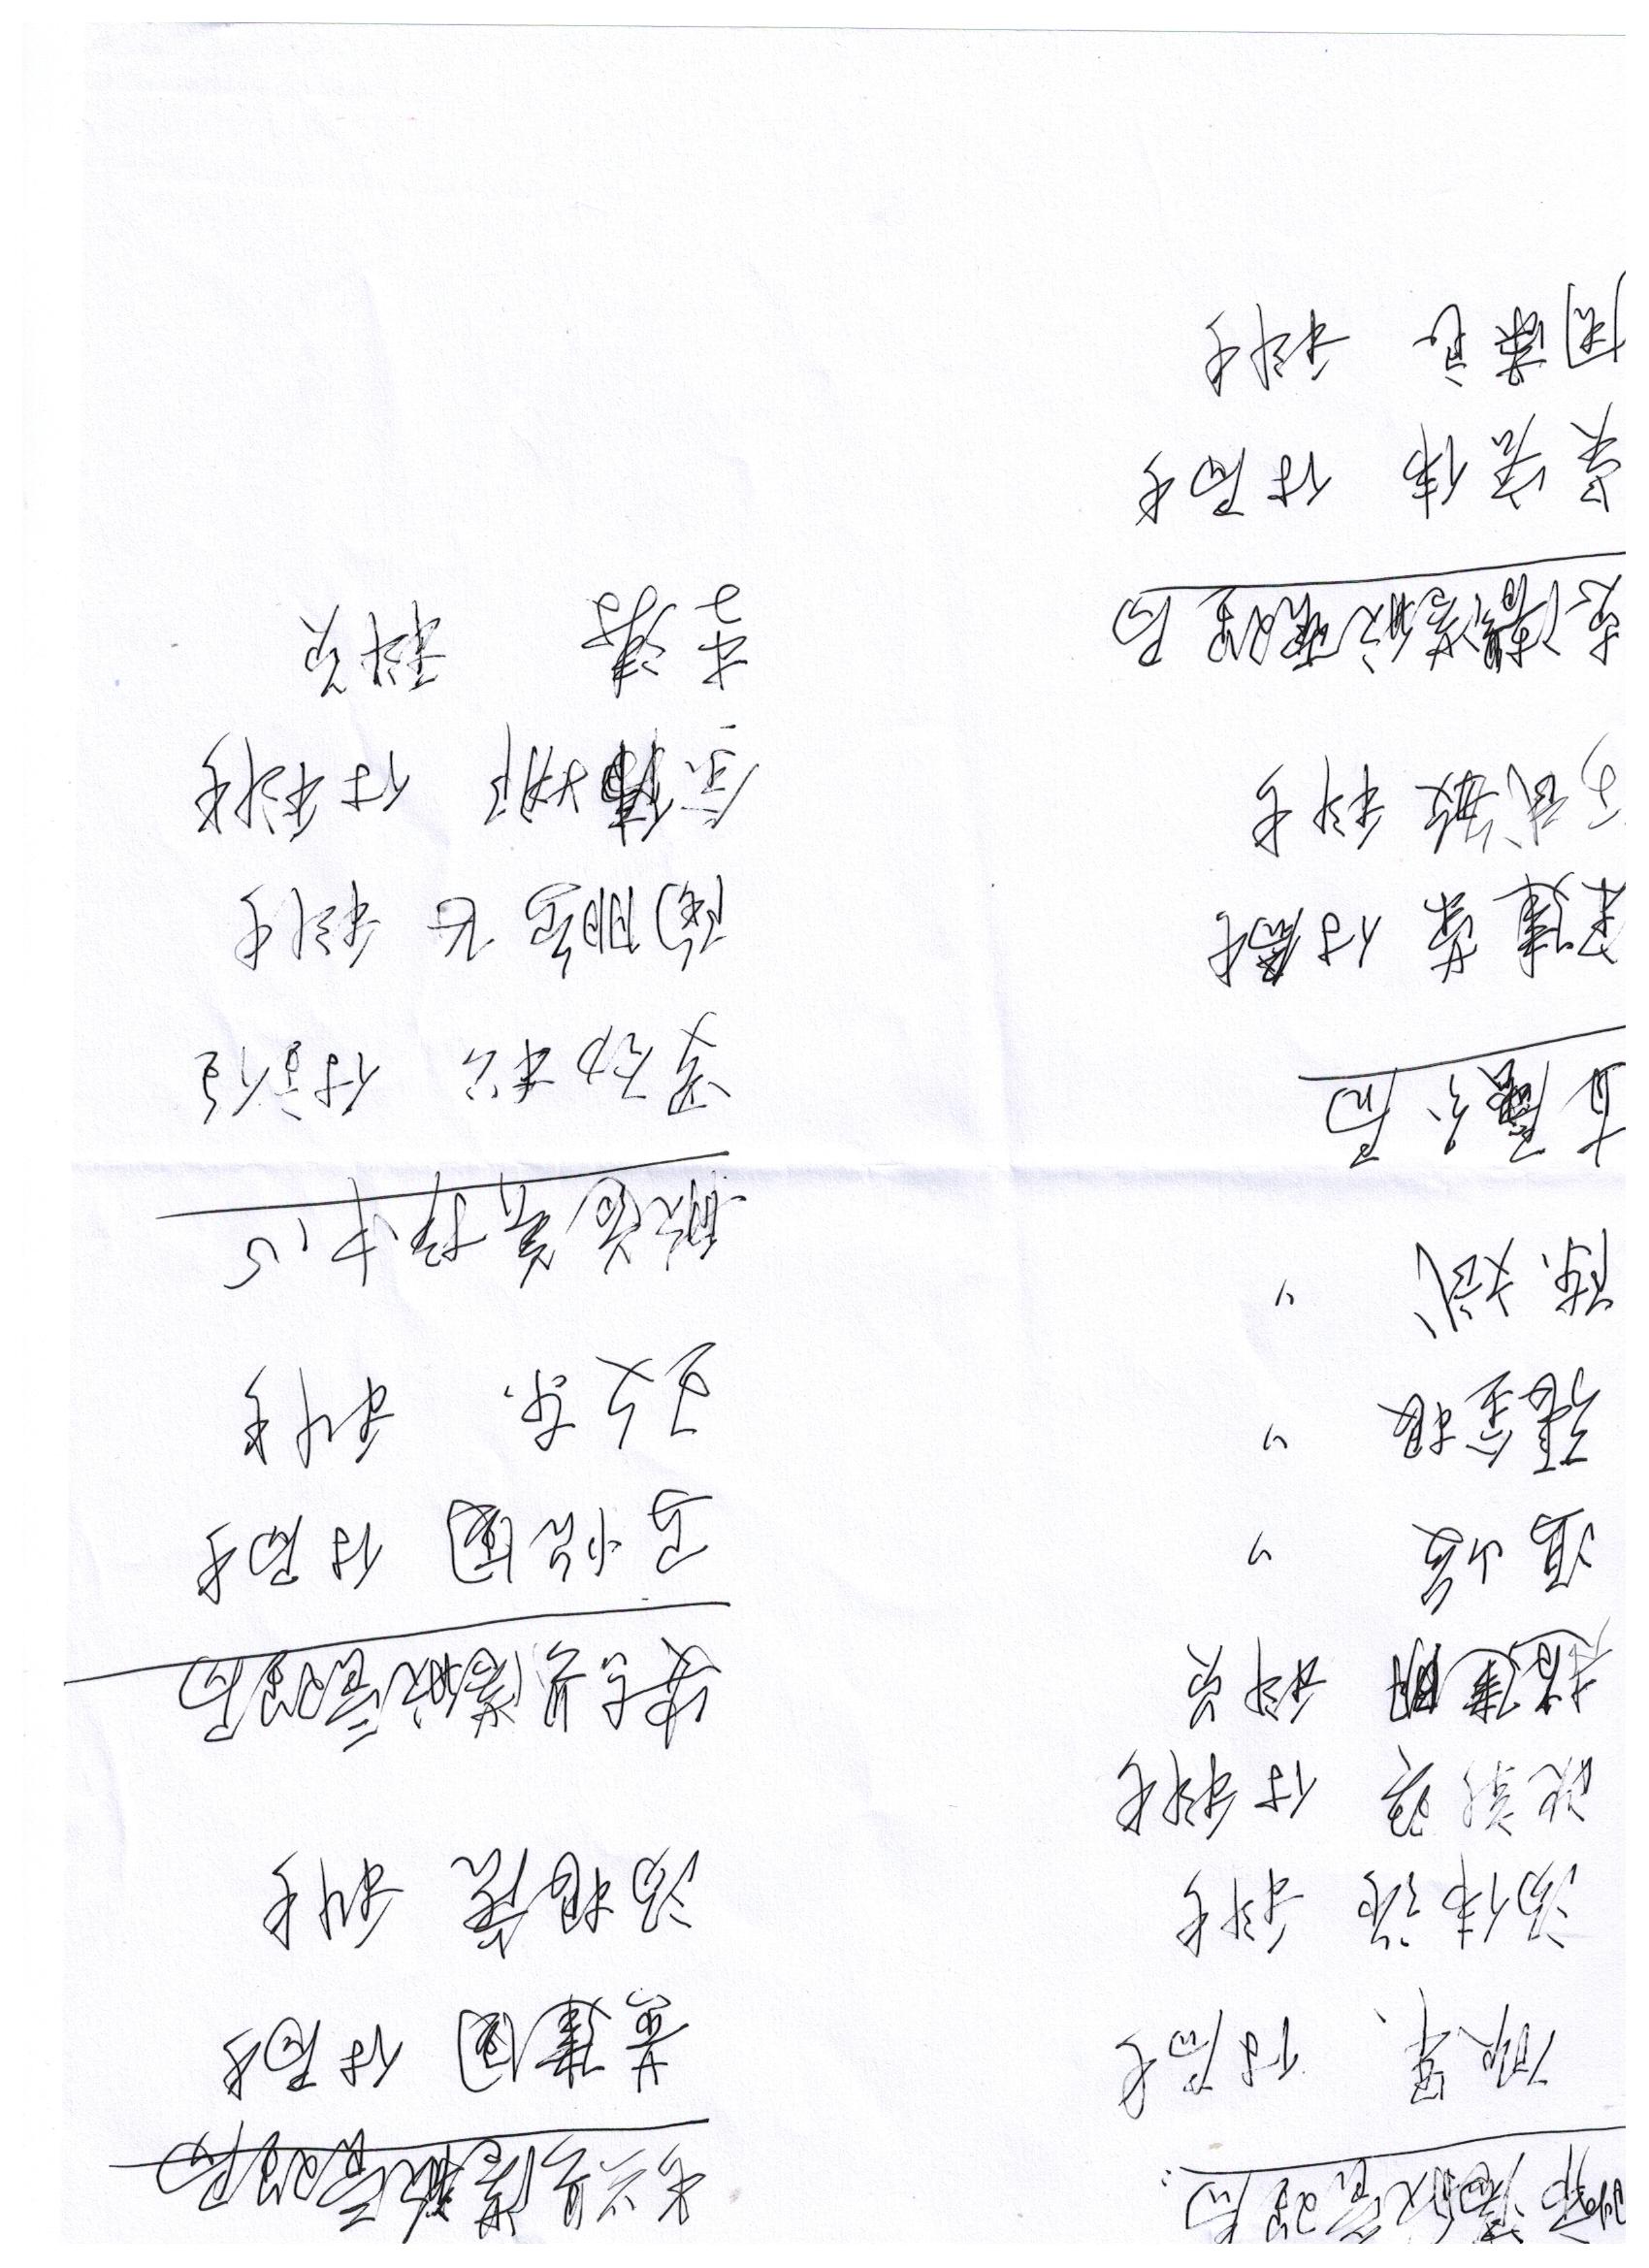 市港航管理局:
顾军、 付局长
汤伟强 科长
沈新琴 付科长
赵建明 科员
冯峻 〃
張金根 〃
陈文斌 〃
直属分局
宋建荣 付局长
武敏 科长
德清县港航管理局
吴宏伟 付局长
周荣良 科长
长兴县港航管理局
黄建国 付局长
汤根虎 科长
安吉县港航管理局
马怡国 付局长
王文东 科长
航道养护中心
罗劲松 付主任
陶鹏飞 科长
余倩娜 付科长
李涛 科员